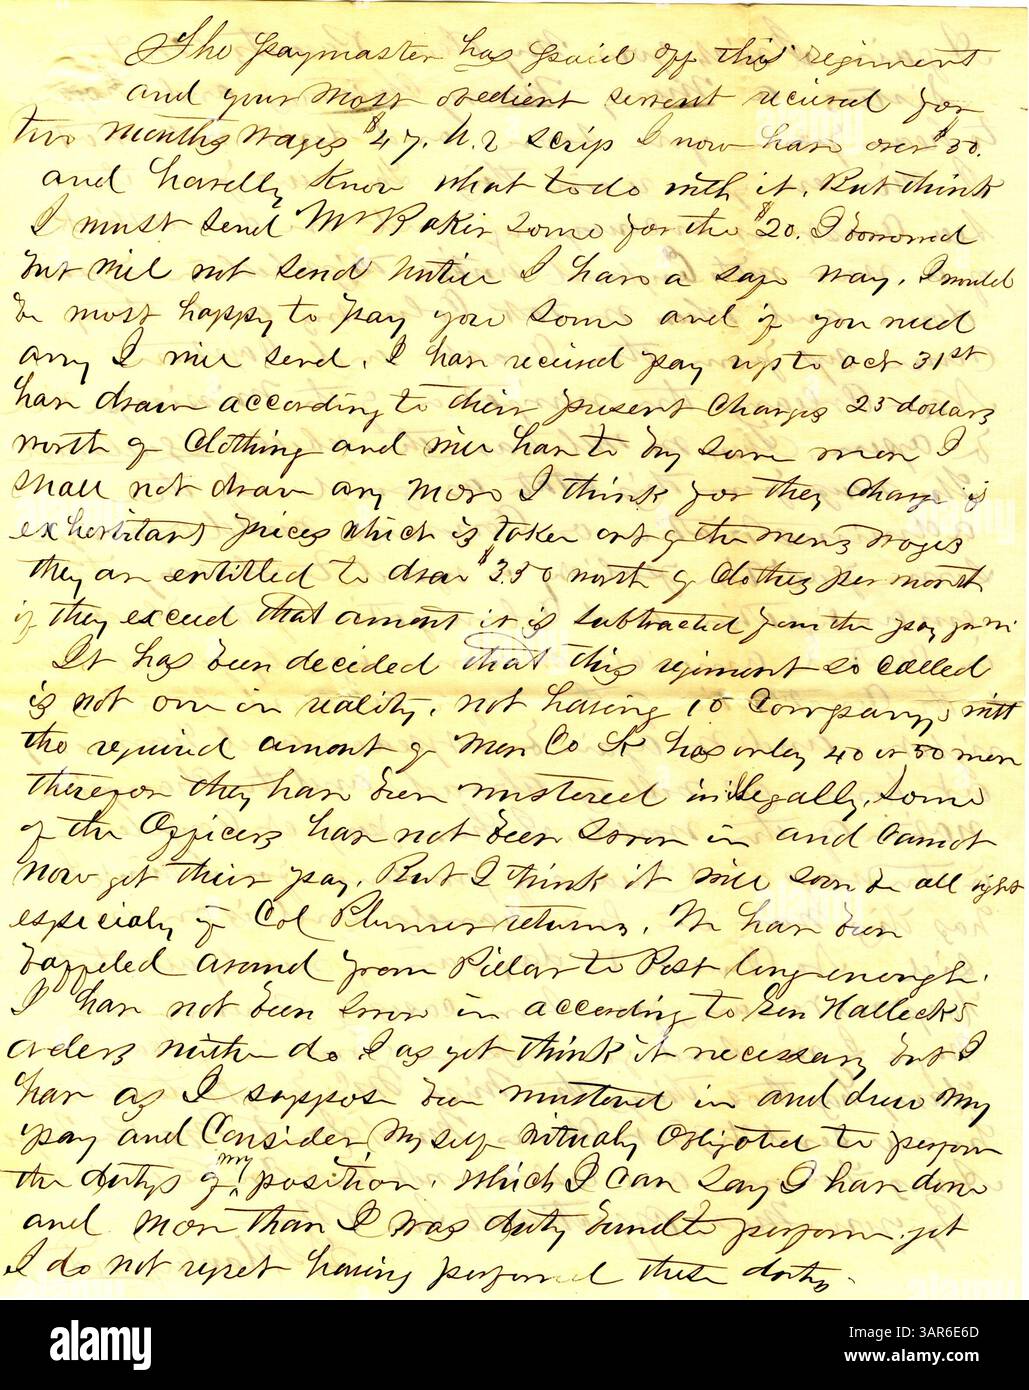 The paymaster has paid off this regiment
and your most obedient servent received for
two months wages $47. U.S scrip I now have over $50.
and hardly know what to do with it. But think
I must send Mr Baker some for the $20. I borrowed
but will not send untill I have a safe way. I would
be most happy to pay you some and if you need
any I will send. I have received pay up to Oct 31st
have drawn according to their present charges 25 dollars
worth of Clothing and will have to buy some more I
shall not draw any more I think for they charge
exhorbitant prices which is taken out of the mens wages
they are entitled to draw $3.50 worth of Clothes per month
if they exceed that amount it is subtracted from the pay
It has been decided that this regiment so called
is not one in reality, not having 10 Companys with
the required amount of men Co K has only 40 or 50 men
therefore they have been mustered in illegally. Some
of the Officers have not been sworn in and cannot
now get their pay. But I think it will soon be all right
especialy if Col Plumer returns. We have been
around from Pillar to Post long enough.
I have not been sworn in according to Gen Hallecks
orders neither do I as yet think it necessary but I
have as I suppose been mustered in and drew my
pay and Consider myself obligated to perform
the dutys of my position, which I can say I have done
and more than I was duty bound to perform. yet
I do not regret having performed these dutys.
alamy
Image ID: 3AR6E6D
www.alamy.com